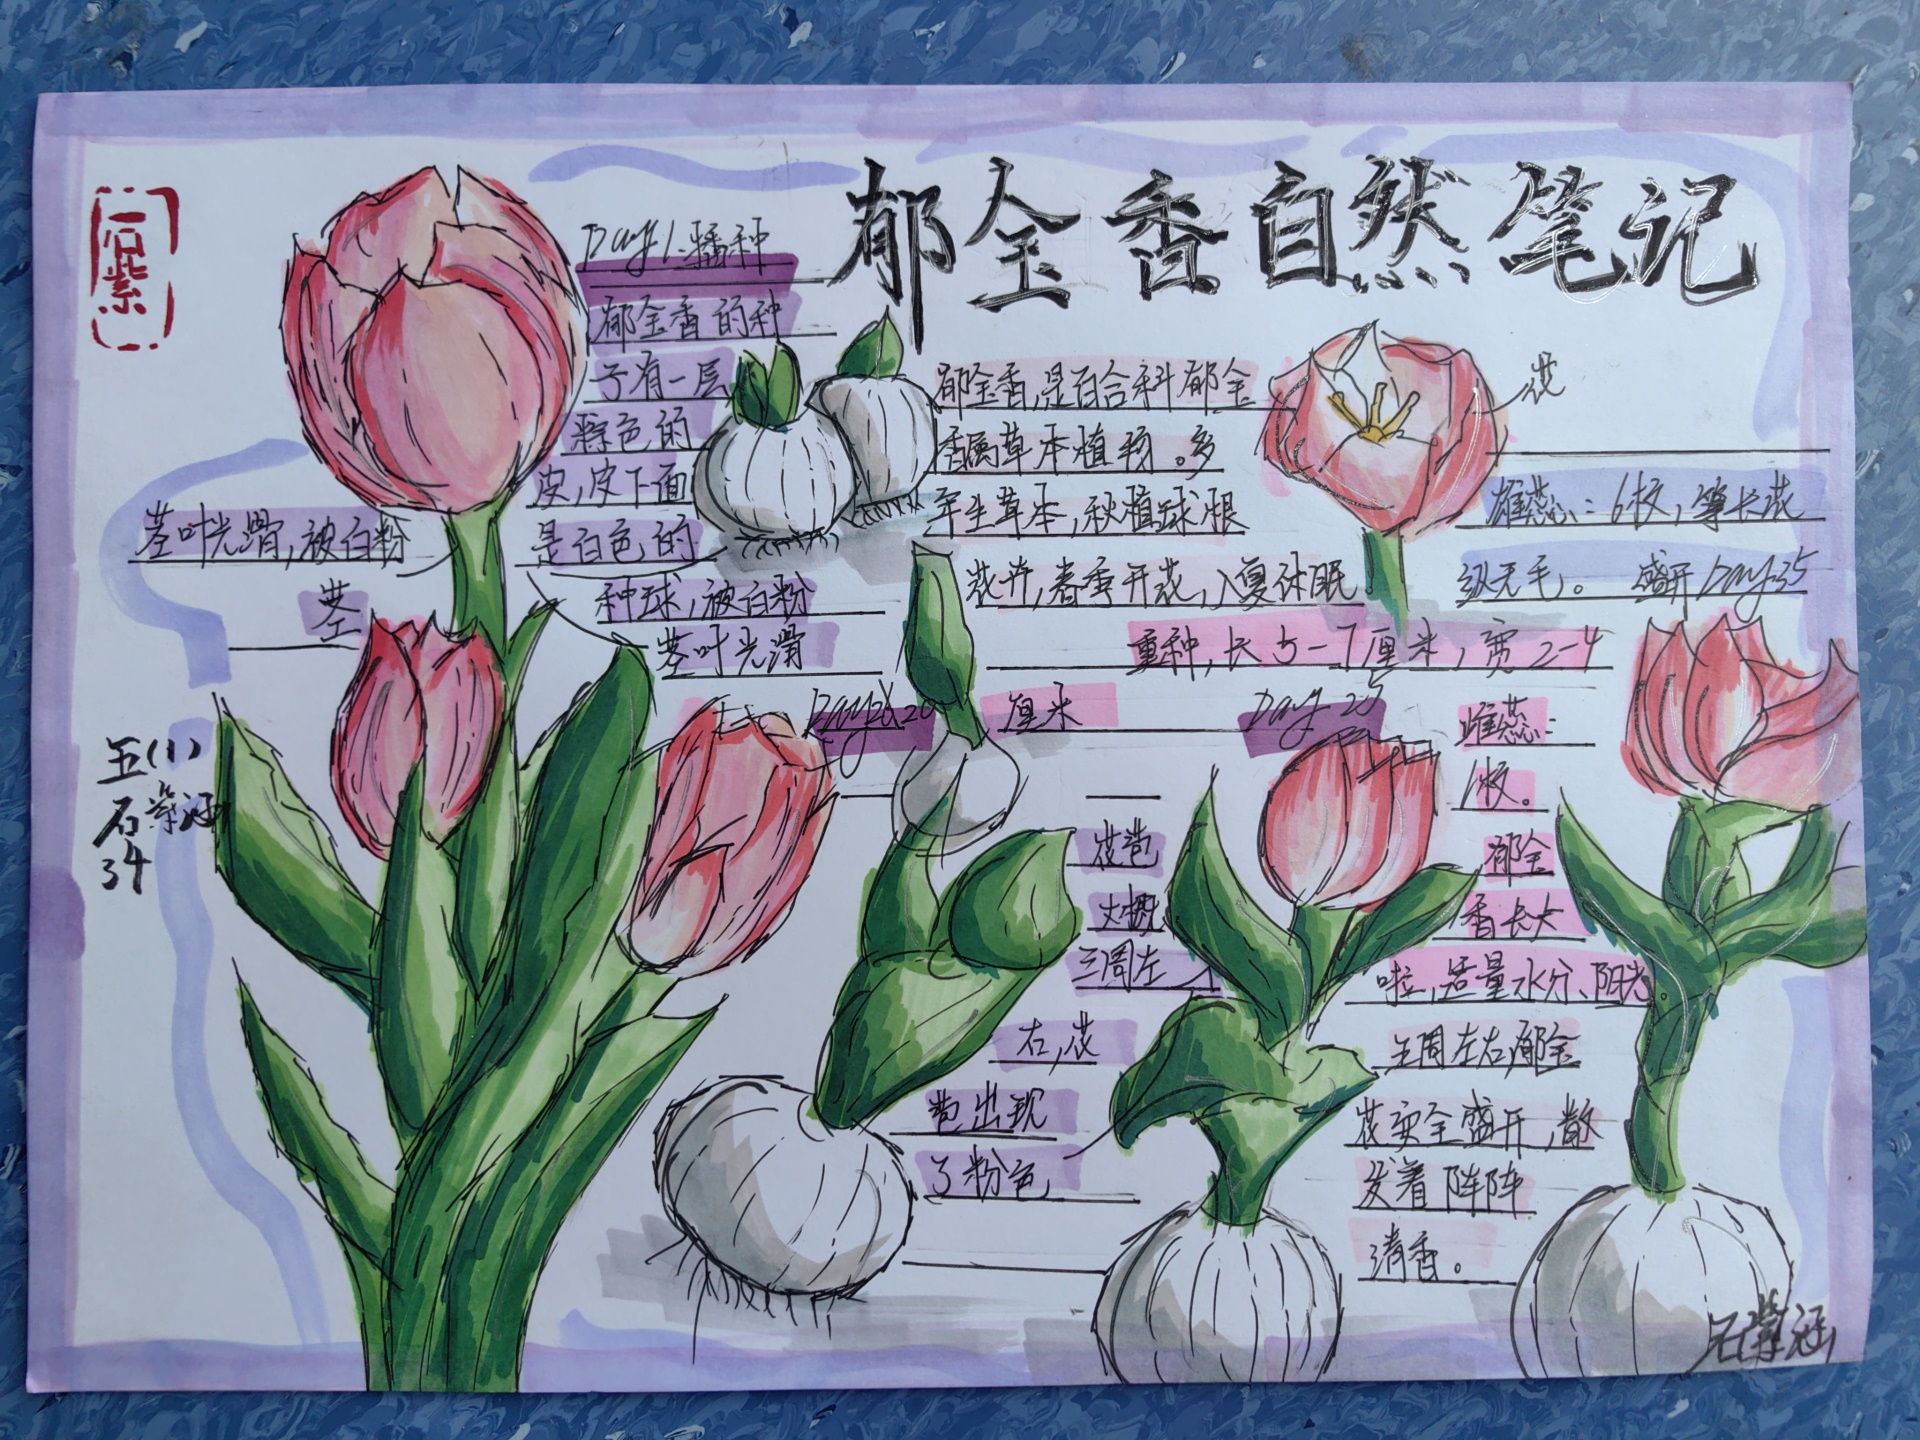 郁金香自然笔记
石紫
Day 1.播种
郁金香的种
子有一层
棕色的
皮,皮下面
是白色的
种球,被白粉
茎叶光滑
茎叶光滑,被白粉
茎
五(1)
石紫涵
34
郁金香,是百合科郁金
香属草本植物。多
年生草本,秋植球根
花卉,春季开花,入夏休眠。
花
雄蕊:6枚,等长花
丝无毛。 盛开Day35
重种,长5-7厘米,宽2-4
厘米
Day 20
Day 25
雌蕊:
1枚。
花苞
大概
三周左
右,花
苞出现
了粉色
郁金
香长大
啦,适量水分、阳光。
五周左右,郁金
花完全盛开,散
发着阵阵
清香。
石紫涵